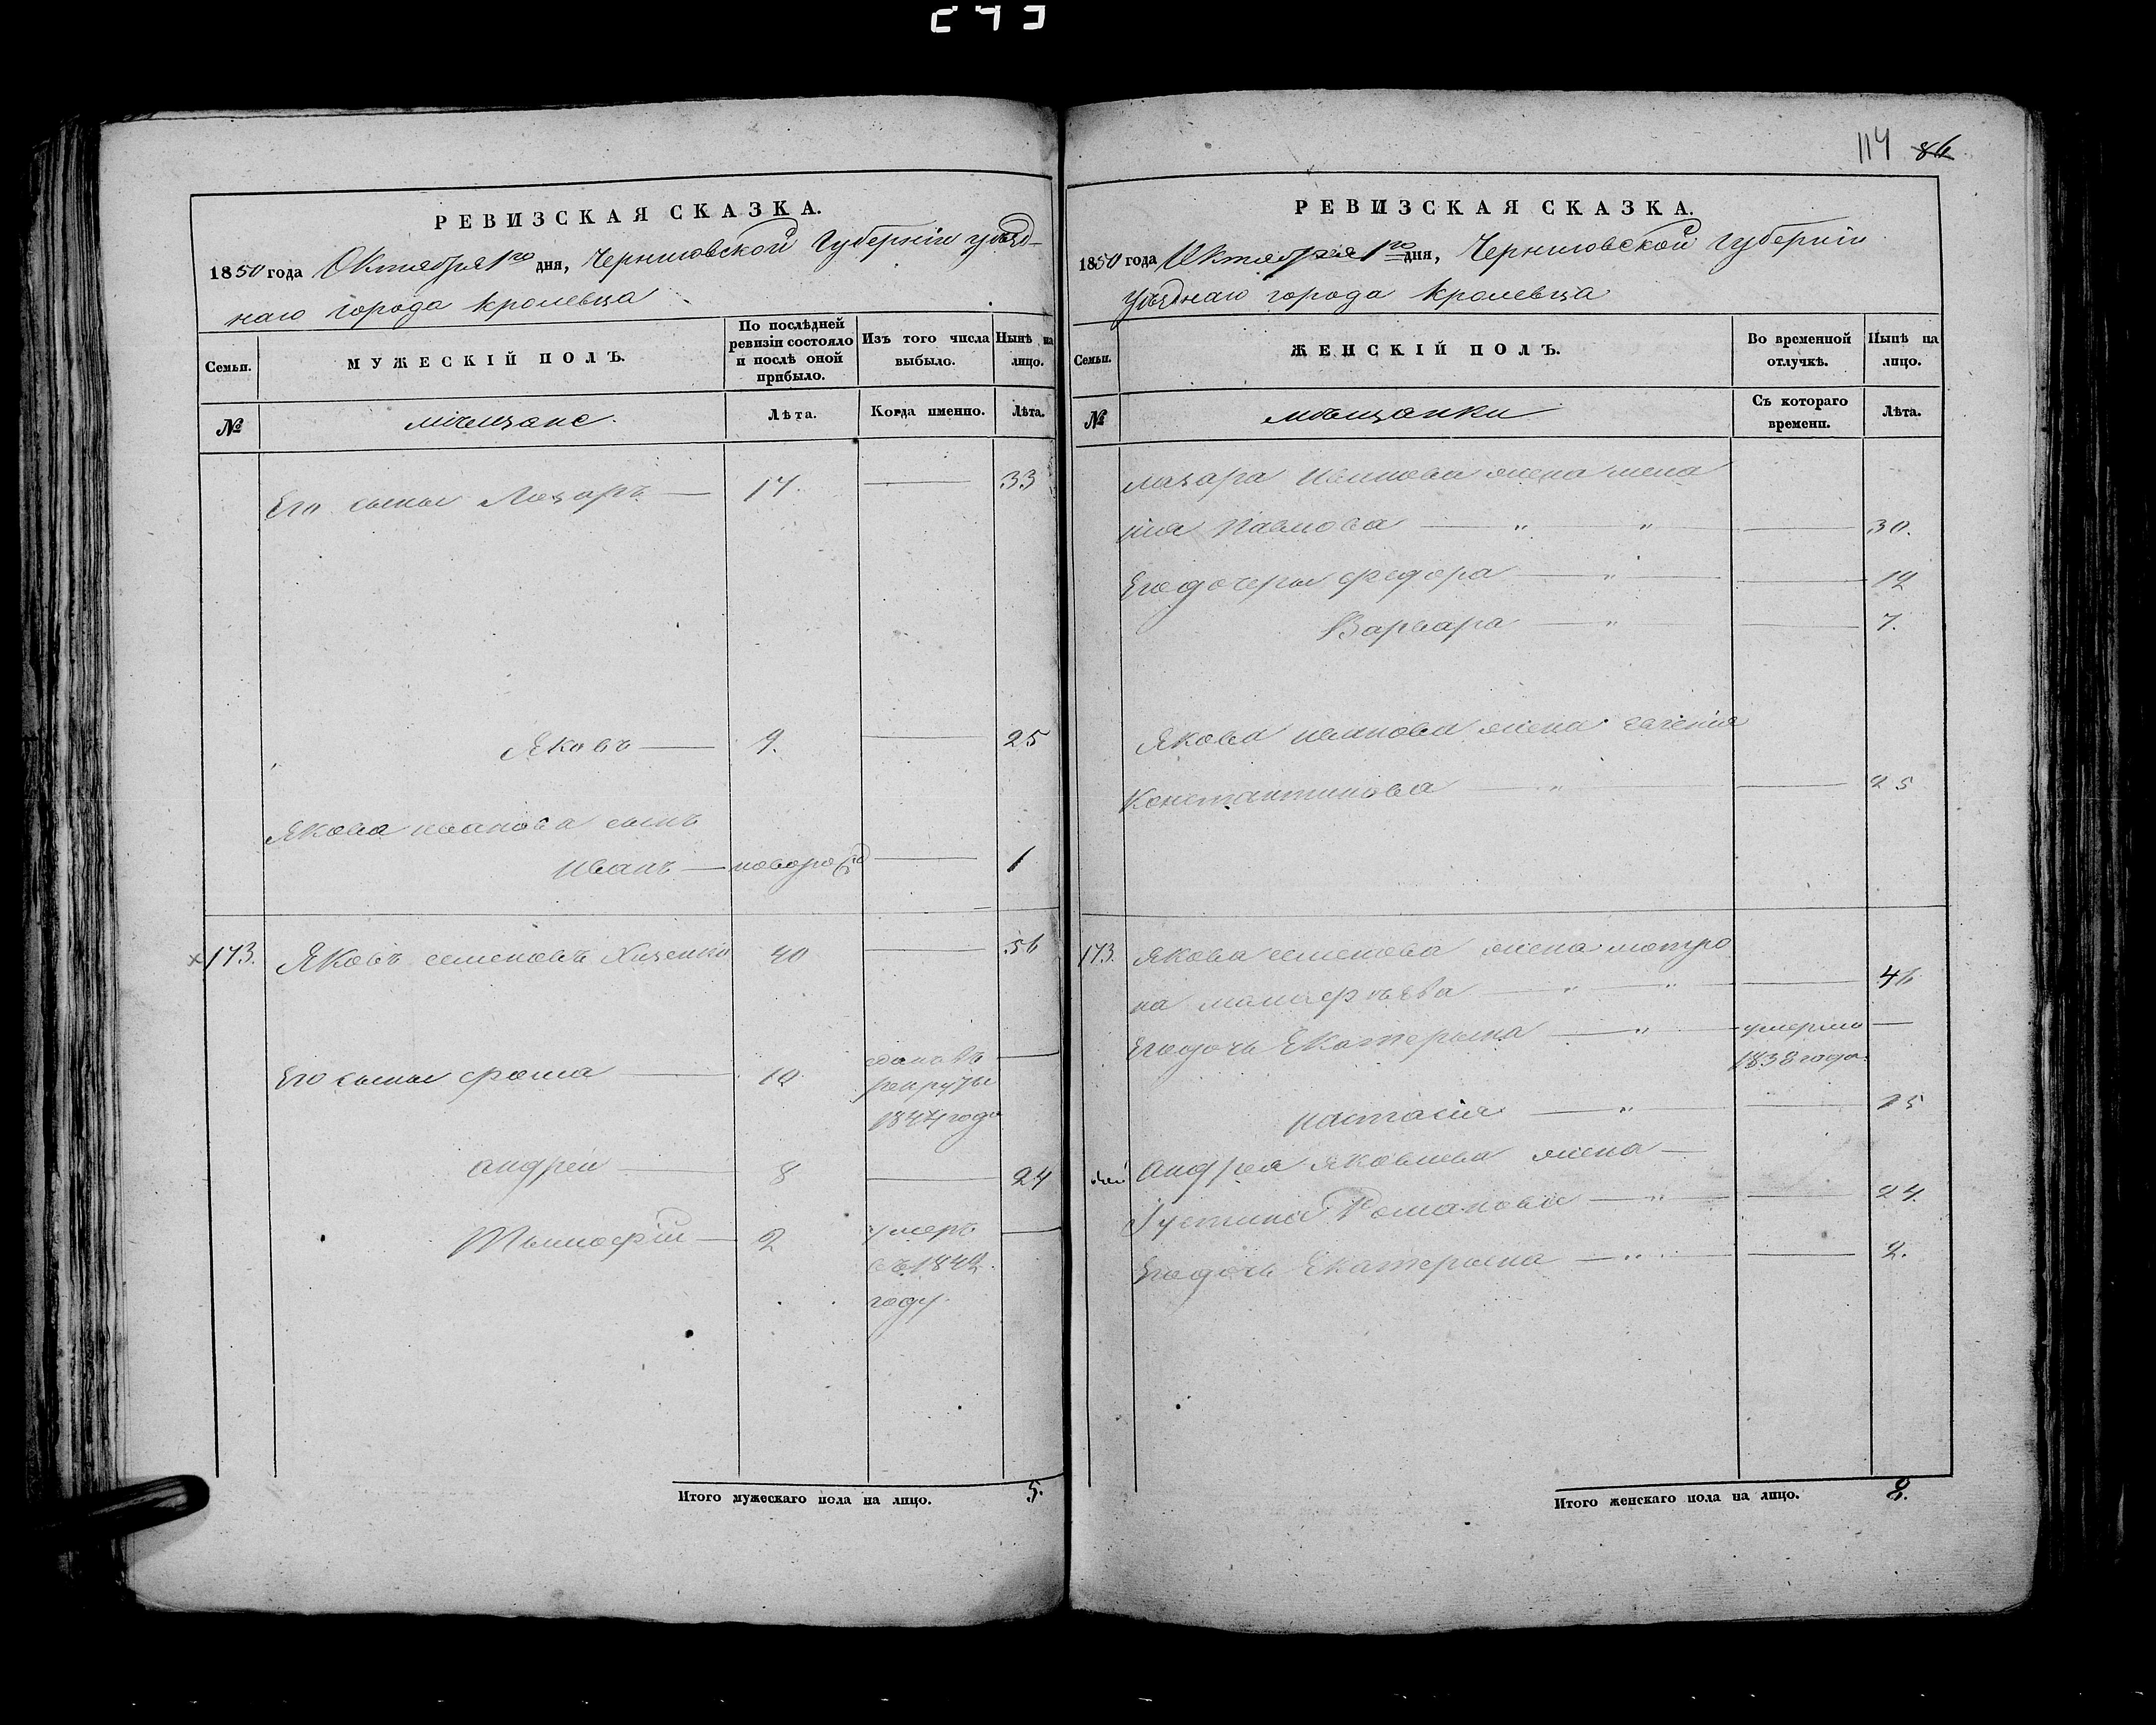 243
РЕВИЗСКАЯ СКАЗКА.
1850 года Октября 1го дня, Черниговской Губерніи уѣзд-
наго города Кролевца
Семьи.
МУЖЕСКІЙ ПОЛЪ.
По послѣдней ревизіи состояло и послѣ оной прибыло.
Изъ того числа выбыло.
Нынѣ на лицо.
№
мѣщане.
Лѣта.
Когда именно.
Лѣта.
Его сыны Лазаръ — 17. — 33
Яковъ — 9. — 25
Якова иванова сынъ
Иванъ — новорож — 1
173. Яковъ семеновъ 40 — 56
Его сыны фома — 10 зданъ въ —
рекруты
1844 года
андреи — 8 — 24
Тымофій — 2 умеръ —
въ 1842.
году.
Итого мужескаго пола на лицо. 5.
114 86
РЕВИЗСКАЯ СКАЗКА.
1850 года Октября 1го дня, Черниговской Губерніи
Уѣзднаго города Кролевца
Семьи.
ЖЕНСКІЙ ПОЛЪ.
Во временной отлучкѣ.
Нынѣ на лицо.
№
мѣщанки
Съ котораго времени.
Лѣта.
Лазара Иванова жена мела
нія Павлова — " " — 30.
Его дочеры федора — " — 12
Варвара — " — 7.
Якова иванова жена
Константинова — " — 25
173. Якова семенова жена мотро
на — " — " — 46
Его дочь Екатерына — " — умерла —
1838 года
настасія — " — 15
Андрея яковлева жена —
Устинія Романова — " — 24.
Его дочь Екатерына — " — 2.
Итого женскаго пола на лицо. 8.